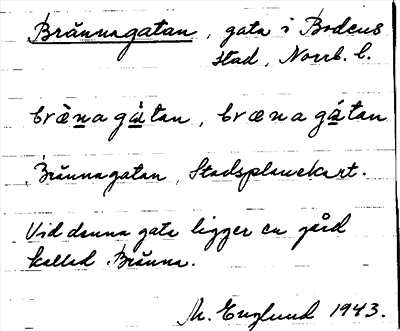 Brännagatan, gata i Bodens
stad, Norrb. l.
bræ̀na gàtan, bræna gátan
Brännagatan, Stadsplanekart.
Vid denna gata ligger en gård
kallad Bränna.
M. Englund 1943.